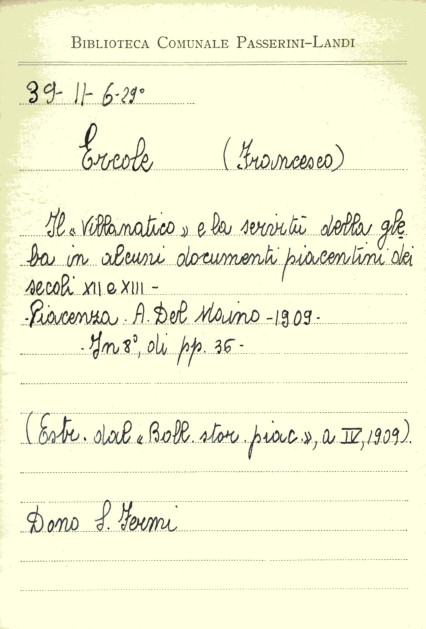 BIBLIOTECA COMUNALE PASSERINI-LANDI
39-11-6-29°
Ercole (Francesco)
Il «Villanatico» e la servitù della gle
ba in alcuni documenti piacentini dei
secoli XII e XIII -
- Piacenza. A. Del Maino - 1909 -
- In 8°, di pp. 36 -
(Estr. dal «Boll. stor. piac.», a IV, 1909).
Dono S. Fermi